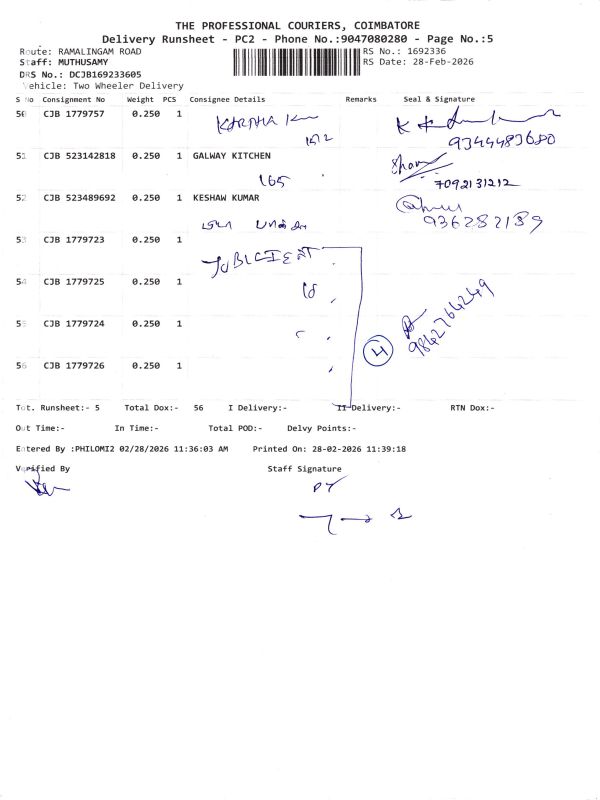 THE PROFESSIONAL COURIERS, COIMBATORE
Delivery Runsheet - PC2 - Phone No.:9047080280 - Page No.:5
Route: RAMALINGAM ROAD RS No.: 1692336
Staff: MUTHUSAMY RS Date: 28-Feb-2026
DRS No.: DCJB169233605
Vehicle: Two Wheeler Delivery
S No Consignment No Weight PCS Consignee Details Remarks Seal & Signature
50 CJB 1779757 0.250 1
9344483680
51 CJB 523142818 0.250 1 GALWAY KITCHEN
165 7092131212
52 CJB 523489692 0.250 1 KESHAW KUMAR
936282189
53 CJB 1779723 0.250 1
54 CJB 1779725 0.250 1
55 CJB 1779724 0.250 1
4 9842764249
56 CJB 1779726 0.250 1
Tot. Runsheet:- 5 Total Dox:- 56 I Delivery:- II Delivery:- RTN Dox:-
Out Time:- In Time:- Total POD:- Delvy Points:-
Entered By :PHILOMI2 02/28/2026 11:36:03 AM Printed On: 28-02-2026 11:39:18
Verified By Staff Signature